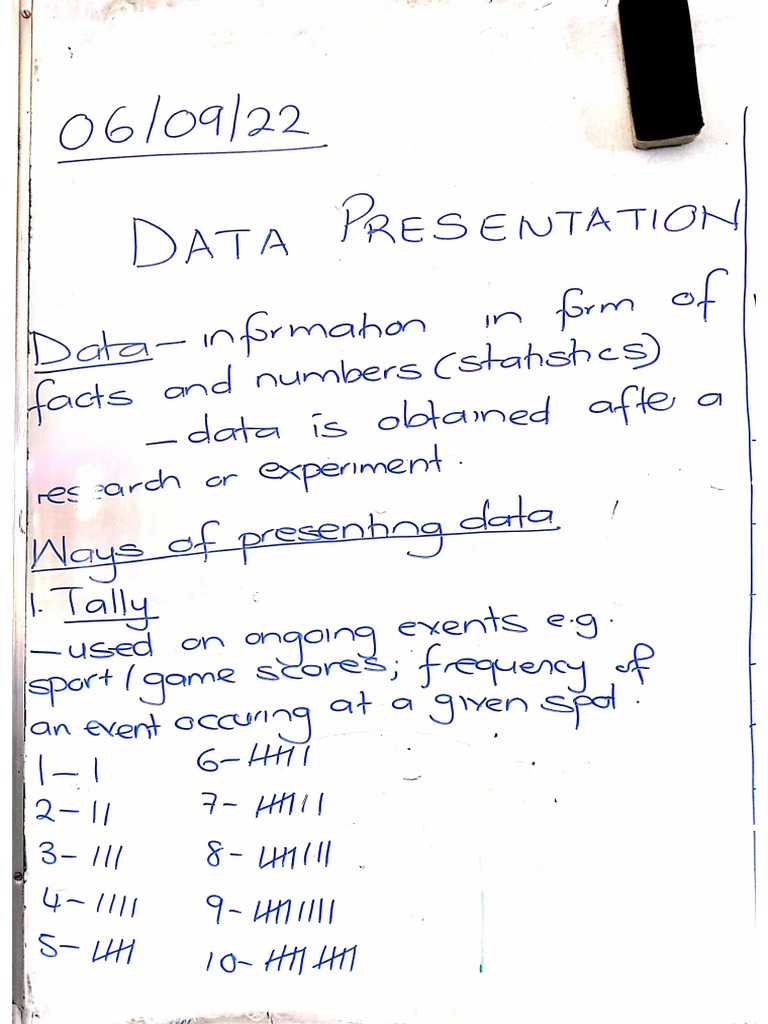 06/09/22
DATA PRESENTATION
Data - information in form of
facts and numbers (statistics)
- data is obtained after a
research or experiment.
Ways of presenting data
1. Tally
- used on ongoing exents e.g.
sport/game scores; frequency of
an event occuring at a given spot.
1 - | 6 - 卌 |
2 - || 7 - 卌 ||
3 - ||| 8 - 卌 |||
4 - |||| 9 - 卌 ||||
5 - 卌 10 - 卌 卌